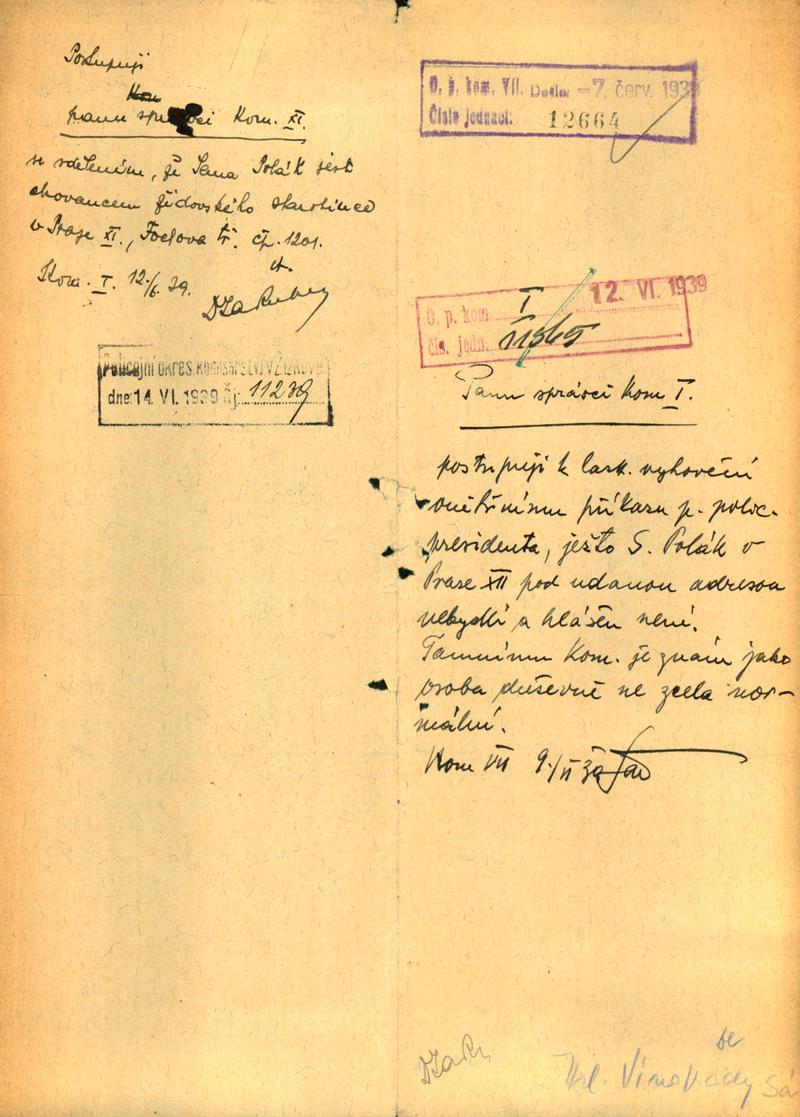 Postupuji
Kom
panu správci Kom. XI.
se sdělením, že Sama Polák jest
chovancem židovského starobince
v Praze XI., Fochova tř. čp. 1201.
Kom. I. 12./6. 39.
Policejní okres. komisařství v Žižkově
dne: 14. VI. 1939 Čj. 11239
O. p. kom. VII. Došlo: -7. červ. 1939
Číslo jednací: 12664
O. p. kom. I 12. VI. 1939
čís. jedn.
Panu správci Kom I.
postupuji k lask. vyhovění
vnitřnímu příkazu p. polic.
presidenta, ježto S. Polák v
Praze XII pod udanou adresou
nebydlí a hlášen není.
Tamnímu Kom. je znám jako
osoba duševně ne zcela nor-
mální.
Kom VII 9./VI 39